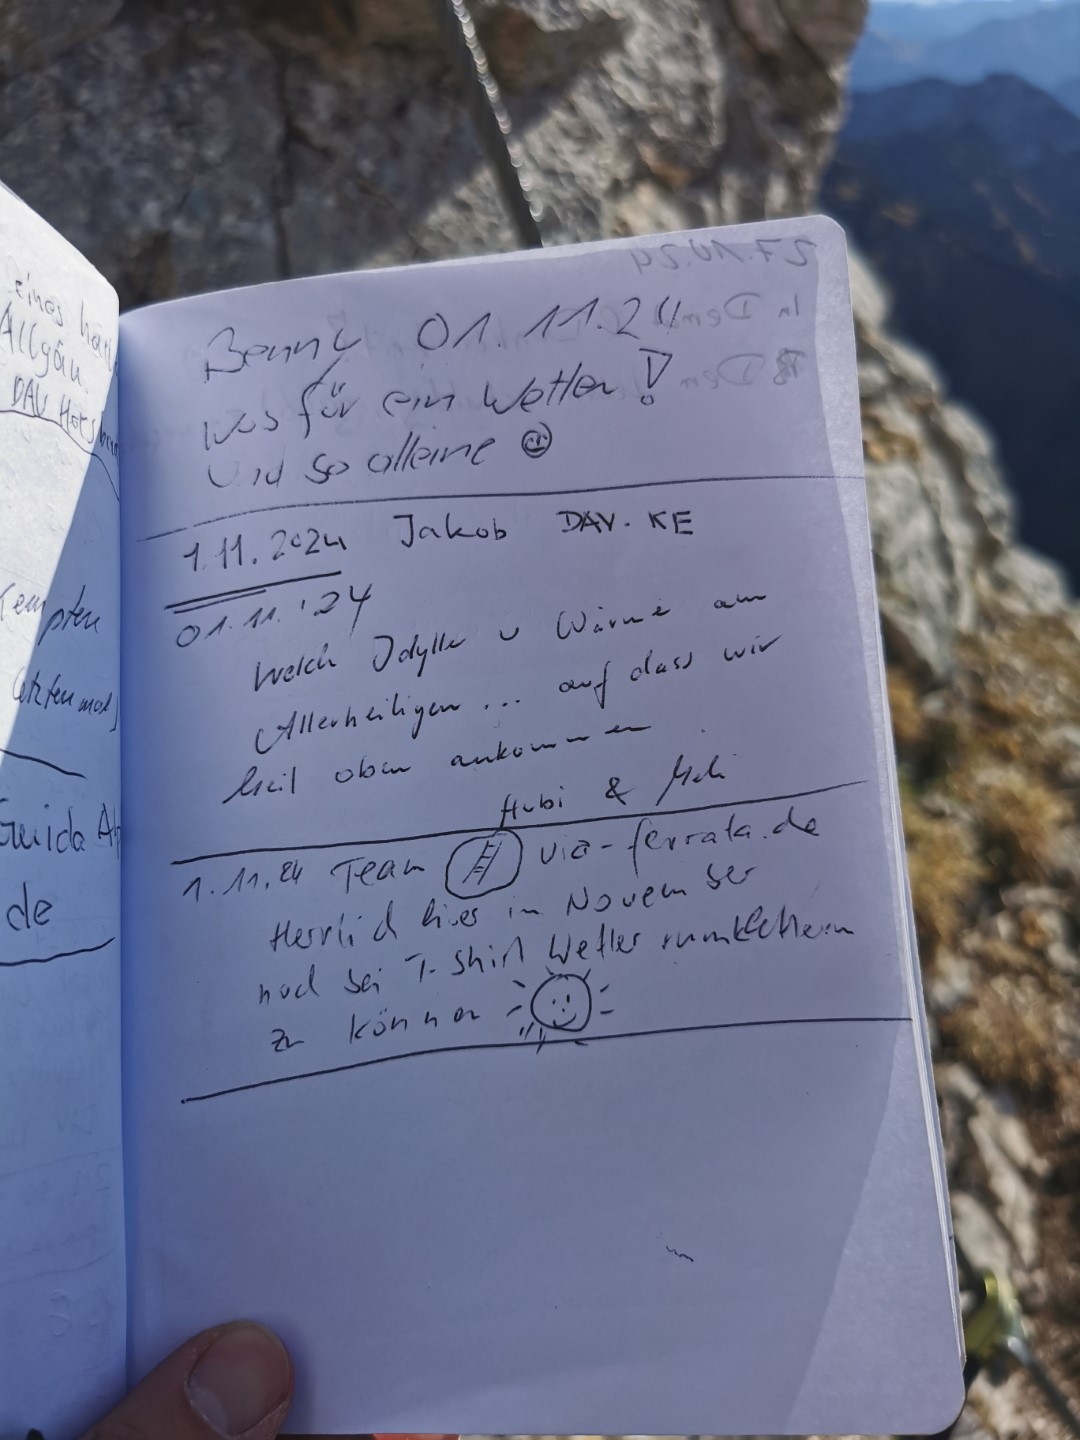 eines
Allgäu.
DAV
Kempten
letzten mal
Guida
de
27.10.24
In Dem
Benny 01.11.24
Was für ein Wetter!
Und so alleine ☺
1.11.2024 Jakob DAV. KE
01.11.'24
Welch Idylle u Wärme an
Allerheiligen... auf dass wir
heil oben ankommen
Hubi &
1.11.24 Team via-ferrata.de
Herrlich hier im November
noch bei T-Shirt Wetter rumklettern
zu können